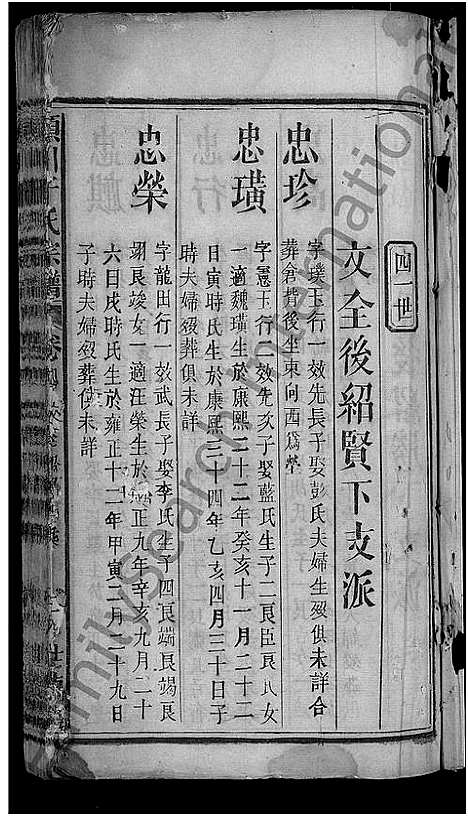 四一世
文全後紹賢下支派
忠珍
字璞玉行一效先長子娶彭氏夫婦生歿俱未詳合
葬倉背後坐東向酉為塋
忠璜
字憲玉行一效先次子娶藍氏生子二良臣良 女
一適魏璜生於康熙二十二年癸亥十一月二十二
日寅時氏生於康熙三十四年乙亥四月三十日子
時夫婦歿葬俱未詳
忠榮
字龍田行一效武長子娶李氏生子四良端良竭良
翊良竣女一適汪榮生於雍正九年辛亥九月二十
六日戌時氏生於雍正十二年甲寅二月二十九日
子時夫婦歿葬俱未詳
氏宗譜